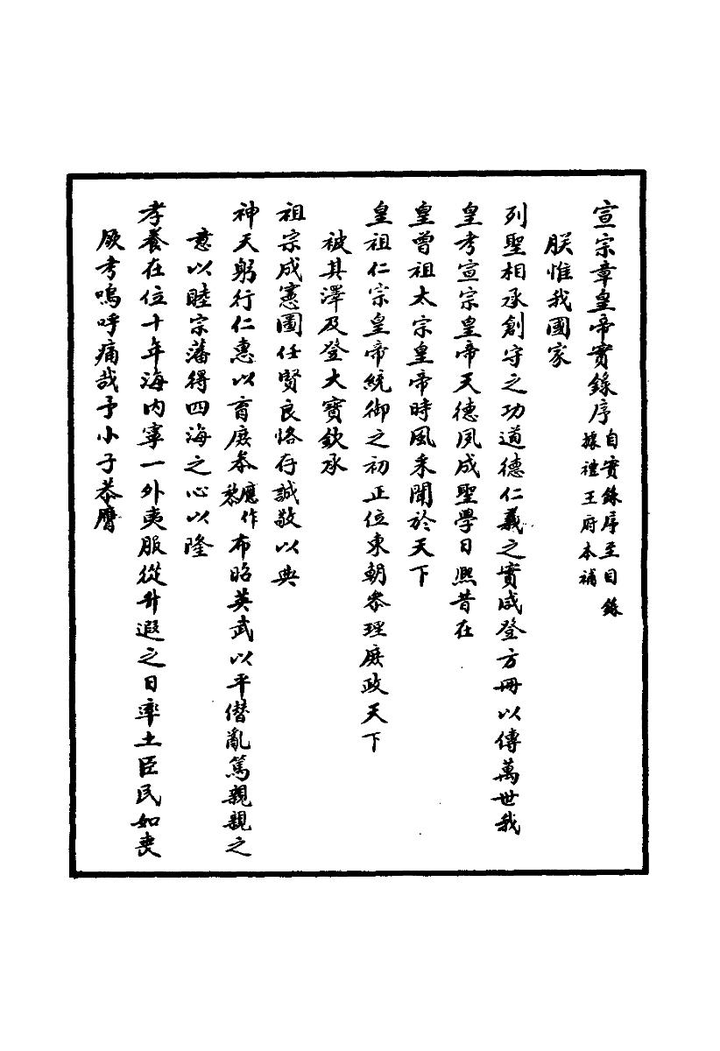 宣宗章皇帝實錄序自實錄序至目錄
據禮王府本補
朕惟我國家
列聖相承創守之功道德仁義之實咸登方冊以傳萬世我
皇考宣宗皇帝天德夙成聖學日熈昔在
皇曾祖太宗皇帝時風釆聞於天下
皇祖仁宗皇帝統御之初正位東朝叅理庶政天下
被其澤及登大寶欽承
祖宗成憲圖任賢良恪存誠敬以典
神天躬行仁惠以育庶叅應作黎布昭英武以平僭亂篤親親之
意以睦宗藩得四海之心以隆
孝養在位十年海內寧一外夷服從升遐之日率土臣民如喪
厥考嗚呼痛哉予小子恭膺